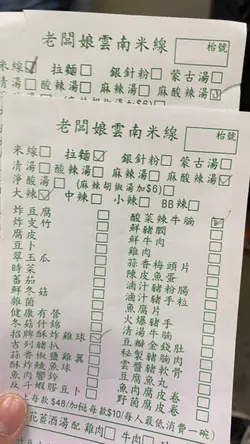 老闆娘雲南米線
枱號
米線 拉麵 銀針粉 蒙古湯
清湯 酸辣湯 麻辣湯 麻酸湯
老闆娘雲南米線
枱號
米線 拉麵 銀針粉 蒙古湯
清湯 酸辣湯 麻辣湯 麻酸湯
淨酸湯 (麻辣胡椒湯加$6)
大辣 中辣 小辣 BB辣
炸豆腐 酸菜辣牛腩
炸支竹 鮮豬膶
腐皮 鮮牛肉
豆卜 雞肉
翠玉瓜 蒜香梅頭片
時菜 陳皮魚蛋
番茄 滷汁豬粉腸
鮮冬菇 滷汁豬手粒
雜菌 魚腐片
健康有營 火爆豬手
冬菇什錦 清湯牛腩
招牌酥炸雞球 豆瓣金錢肚
吉列豬扒 秘製豬軟骨
蒜香椒鹽雞翼 雲醬豬腩肉
酥炸鯪魚球 豆腐魚丸
魚肉響鈴 魚肉腐皮卷
反斗蝦膠豆卜 野菌腐皮卷
每款$48/加每款$10/每人最低消費一碗)
花菇酒湯配 雞肉 牛肉